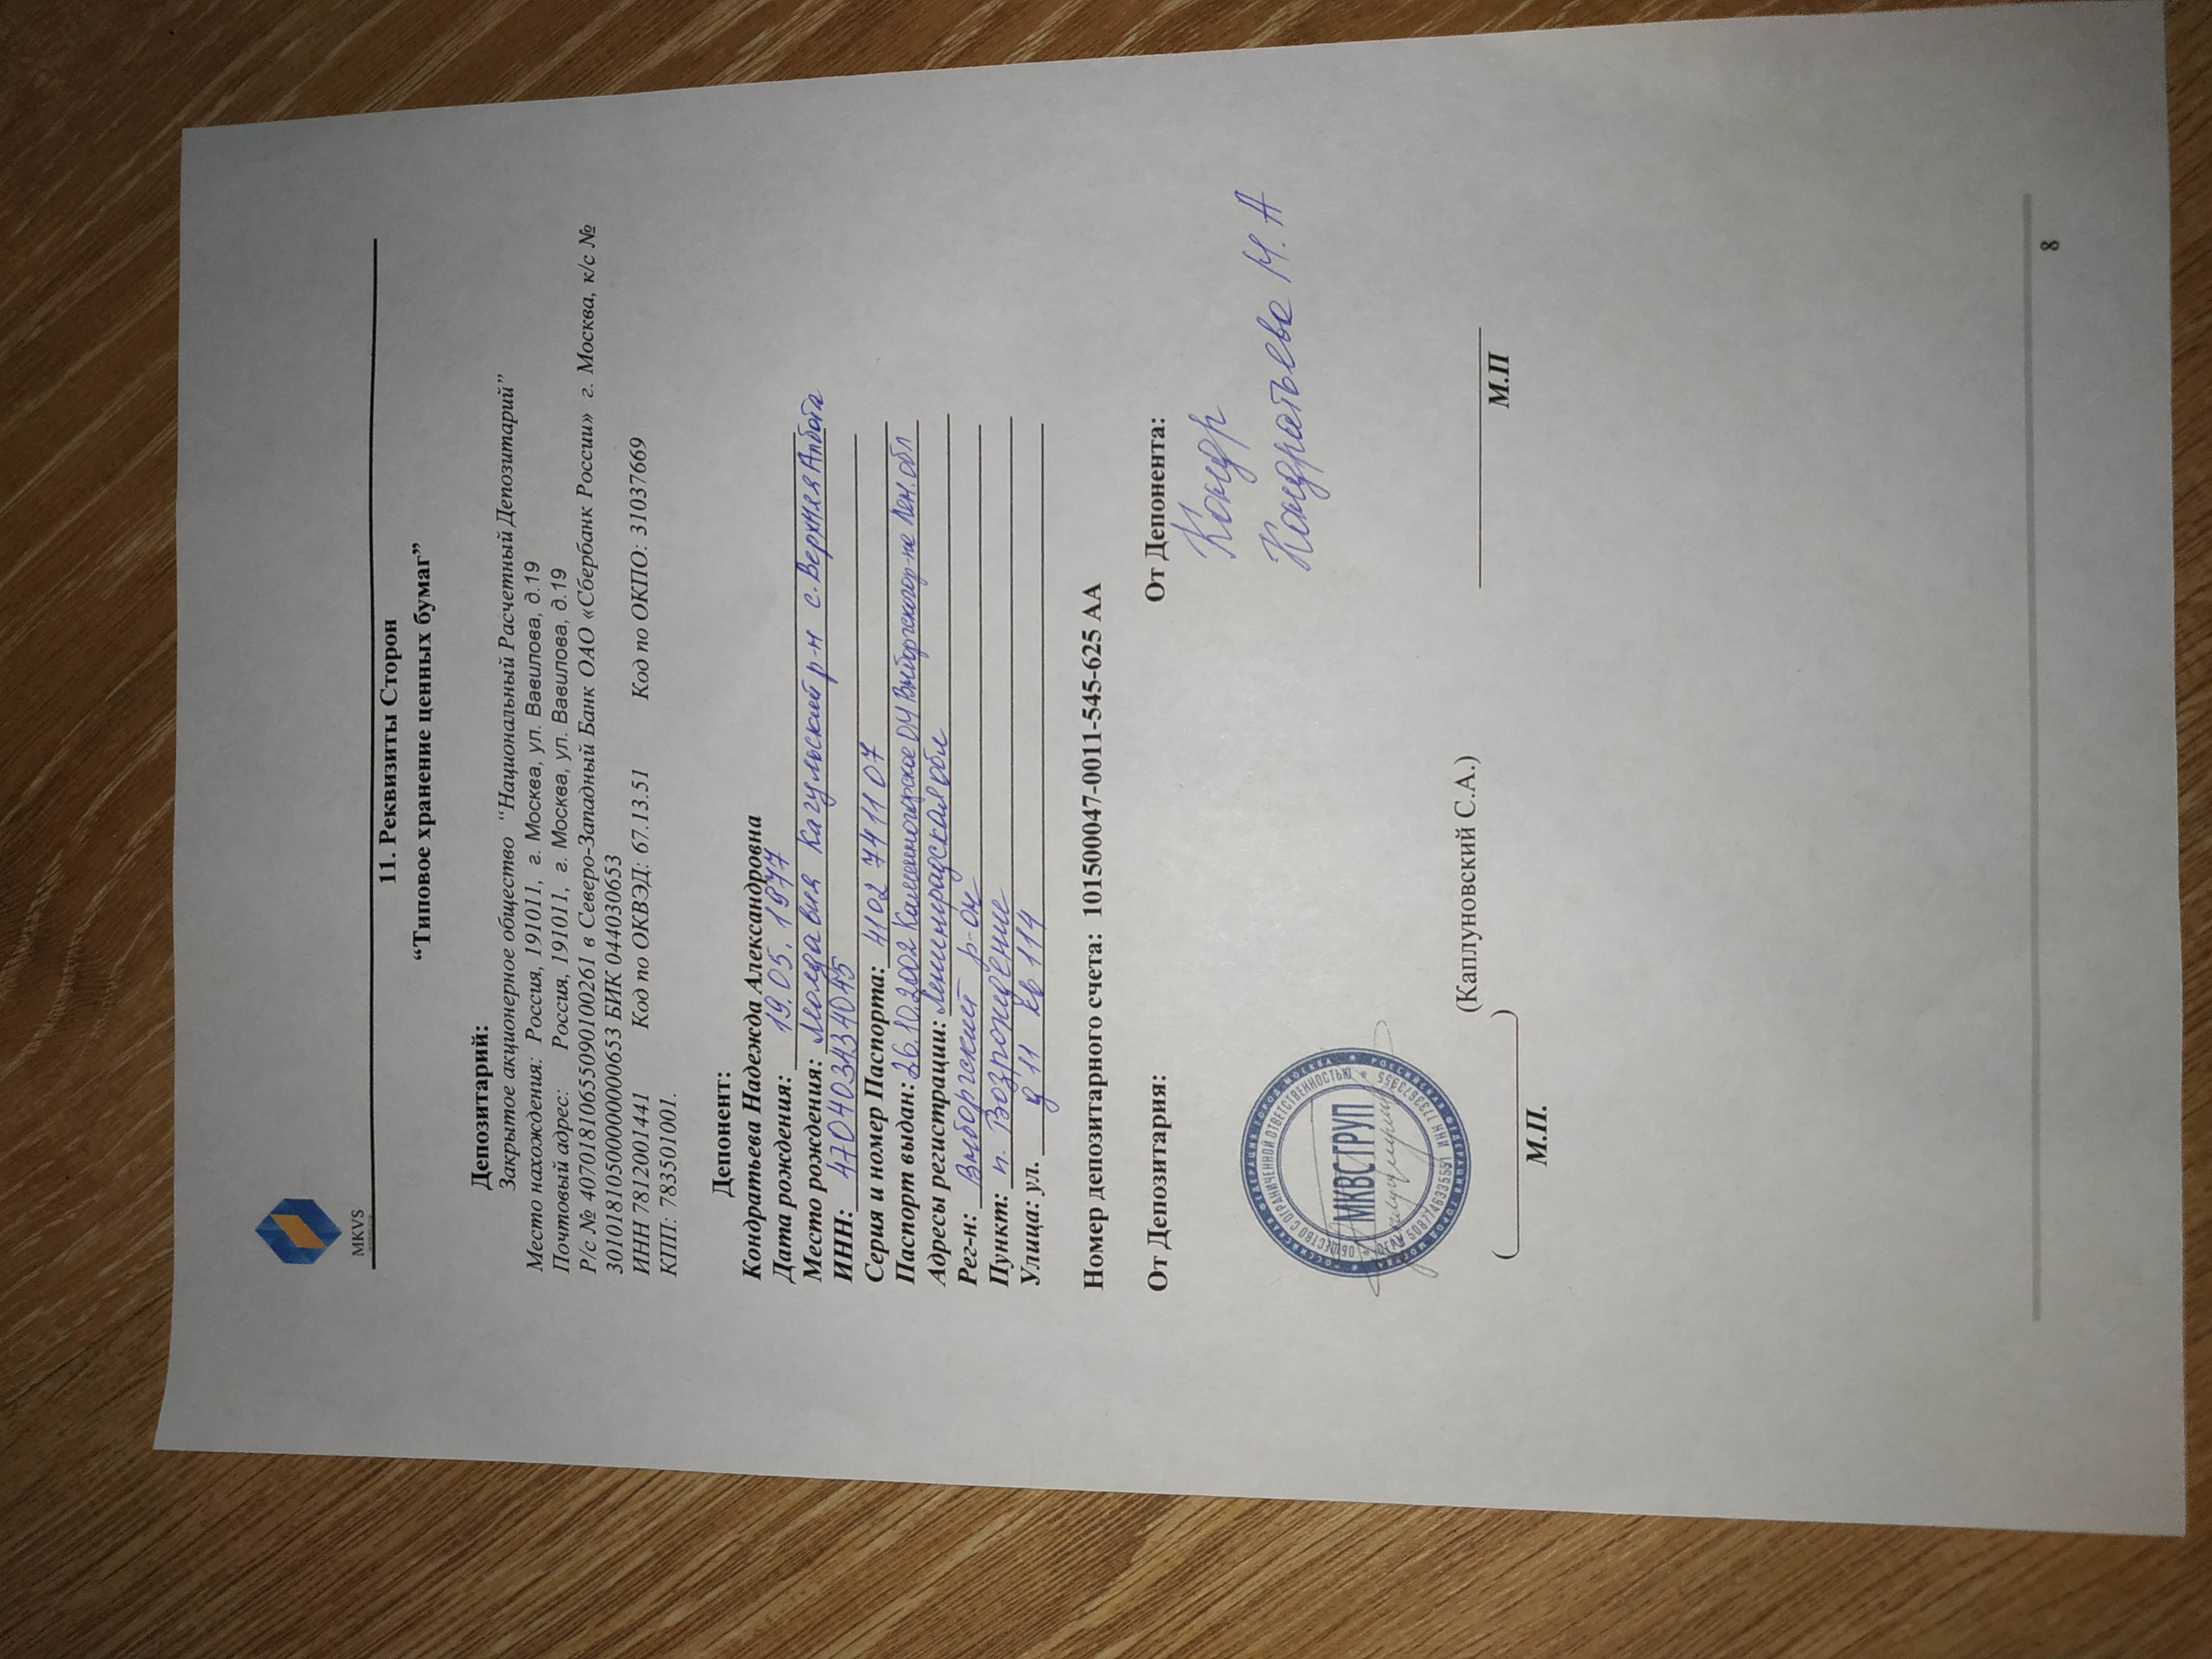 MKVS
11. Реквизиты Сторон
“Типовое хранение ценных бумаг”
Депозитарий:
Закрытое акционерное общество “Национальный Расчетный Депозитарий”
Место нахождения: Россия, 191011, г. Москва, ул. Вавилова, д.19
Почтовый адрес: Россия, 191011, г. Москва, ул. Вавилова, д.19
Р/с № 40701810655090100261 в Северо-Западный Банк ОАО «Сбербанк России» г. Москва, к/с №
30101810500000000653 БИК 044030653
ИНН 7812001441 Код по ОКВЭД: 67.13.51 Код по ОКПО: 31037669
КПП: 783501001.
Депонент:
Кондратьева Надежда Александровна
Дата рождения: 19.05.1977
Место рождения: Молдавия Кагульский р-н с. Верхняя Албота
ИНН: 470403434045
Серия и номер Паспорта: 4102 741107
Паспорт выдан: 26.10.2002 Каменногорское ОМ Выборгского р-на Лен. обл
Адресы регистрации: Ленинградская обл
Рег-н: Выборгский р-он
Пункт: п. Возрождение
Улица: ул. д 11 кв 114
Номер депозитарного счета: 101500047-0011-545-625 АА
От Депозитария: От Депонента:
Кондр
Кондратьева Н. А
РОССИЙСКАЯ ФЕДЕРАЦИЯ ГОРОД МОСКВА * РОССИЙСКАЯ ФЕДЕРАЦИЯ ГОРОД МОСКВА *
ОБЩЕСТВО С ОГРАНИЧЕННОЙ ОТВЕТСТВЕННОСТЬЮ
МКВС ГРУП
ОГРН 5087746335551 ИНН 7733673955
(Каплуновский С.А.)
(____________________)
М.П
М.П.
8